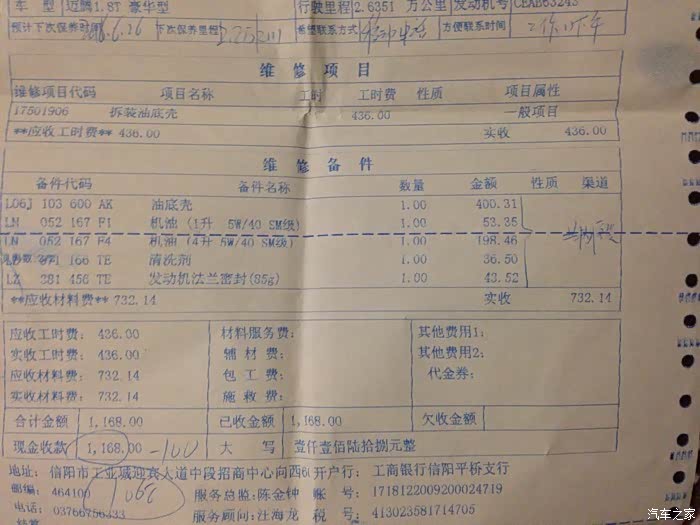 车 型 迈腾1.8T 豪华型 行驶里程 2.6351 万公里 发动机号
预计下次保养时间 下次保养里程 希望联系方式 方便联系时间
维 修 项 目
维修项目代码 项目名称 工时 工时费 性质 项目属性
17501906 拆装油底壳 436.00 一般项目
**应收工时费** 436.00 实收 436.00
维 修 备 件
备件代码 备件名称 数量 金额 性质 渠道
L06J 103 600 AK 油底壳 1.00 400.31
LN 052 167 F1 机油 (1升 5W/40 SM级) 1.00 53.35
LN 052 167 F4 机油 (4升 5W/40 SM级) 1.00 198.46
166 TE 清洗剂 1.00 36.50
LZ 381 456 TE 发动机法兰密封(85g) 1.00 43.52
**应收材料费** 732.14 实收 732.14
应收工时费: 436.00 材料服务费: 其他费用1:
实收工时费: 436.00 辅 材 费: 其他费用2:
应收材料费: 732.14 包 工 费: 代金券:
实收材料费: 732.14 施 救 费:
合计金额 1,168.00 已收金额 1,168.00 欠收金额
现金收款 1,168.00 -100 大 写 壹仟壹佰陆拾捌元整
地址: 信阳市工业城迎宾大道中段招商中心向西 开户行: 工商银行信阳平桥支行
邮编: 464100 1068 服务总监: 陈金钟 账 号: 1718122009200024719
电话: 服务顾问: 汪海龙 税 号: 413023581714705
汽车之家